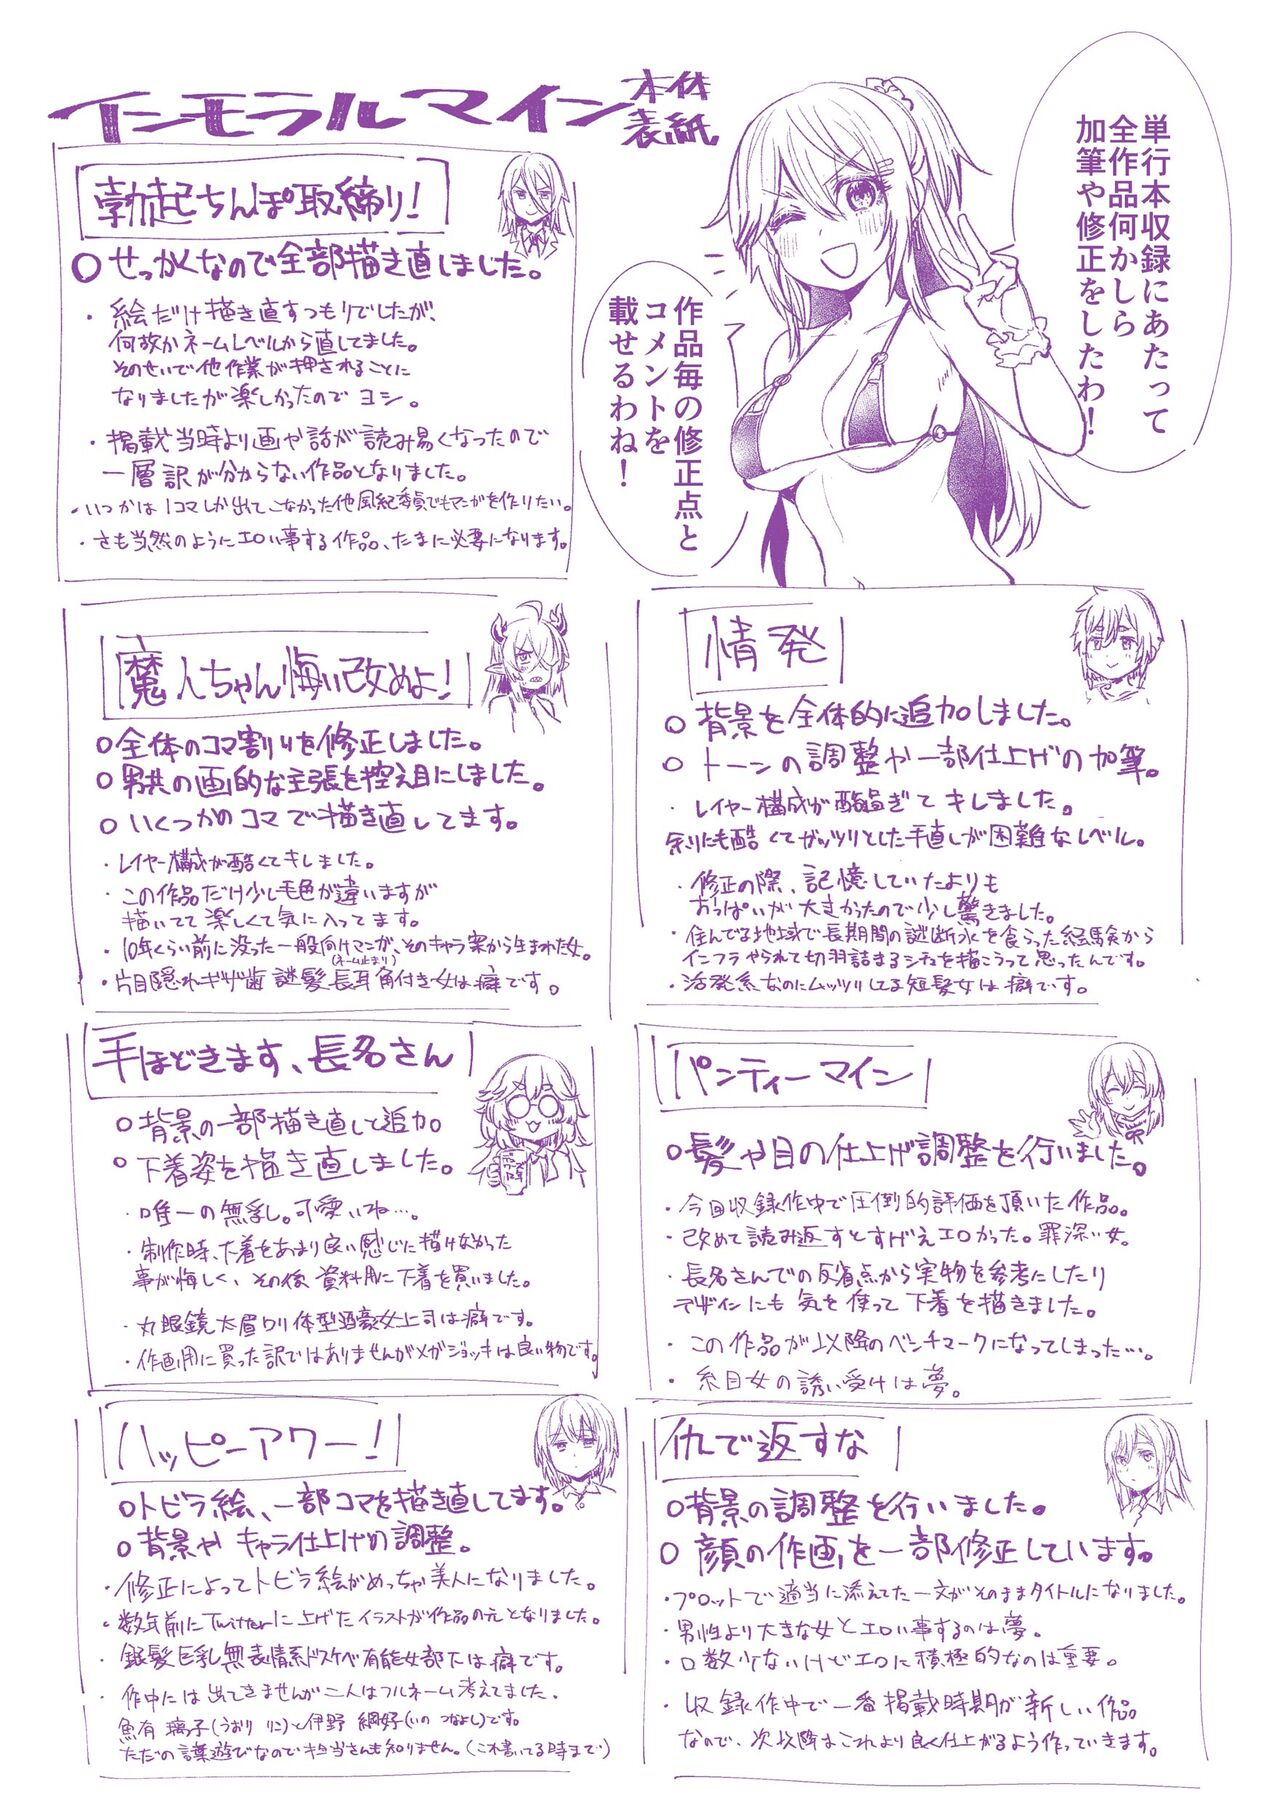 インモラルマイン 本体表紙
単行本収録にあたって
全作品何かしら
加筆や修正をしたわ!
作品毎の修正点と
コメントを
載せるわね!
勃起ちんぽ取締り!
○せっかくなので全部描き直しました。
・絵だけ描き直すつもりでしたが、
何故かネームレベルから直してました。
そのせいで他作業が押されることに
なりましたが楽しかったのでヨシ。
・掲載当時より画や話が読み易くなったので
一層訳が分からない作品となりました。
・いつかは1コマしか出てこなかった他風紀委員でもマンガを作りたい。
・さも当然のようにエロい事する作品、たまに必要になります。
魔人ちゃん悔い改めよ!
○全体のコマ割りを修正しました。
○男共の画的な主張を控え目にしました。
○いくつかのコマで描き直してます。
・レイヤー構成が酷くてキレました。
・この作品だけ少し毛色が違いますが
描いてて楽しくて気に入ってます。
・10年くらい前に没った一般向けマンガ、そのキャラ案から生まれた女。
(ネーム止まり)
・片目隠れギザ歯謎髪長耳角付き女は癖です。
情発
○背景を全体的に追加しました。
○トーンの調整や一部仕上げの加筆。
・レイヤー構成が酷過ぎてキレました。
余りにも酷くてガッツリとした手直しが困難なレベル。
・修正の際、記憶していたよりも
おっぱいが大きかったので少し驚きました。
・住んでる地域で長期間の謎断水を食らった経験から
インフラやられて切羽詰まるシチュを描こうって思ったんです。
・活発系なのにムッツリしてる短髪女は癖です。
手ほどきます、長名さん
○背景の一部描き直しと追加。
○下着姿を描き直しました。
・唯一の無乳。可愛いね…。
・制作時、下着をあまり良い感じに描けなかった
事が悔しく、その後、資料用に下着を買いました。
・丸眼鏡太眉ロリ体型酒豪女上司は癖です。
・作画用に買った訳ではありませんがメガジョッキは良い物です。
パンティーマイン
○髪や目の仕上げ調整を行いました。
・今回収録作中で圧倒的評価を頂いた作品。
・改めて読み返すとすげえエロかった。罪深い女。
・長名さんでの反省点から実物を参考にしたり
デザインにも気を使って下着を描きました。
・この作品が以降のベンチマークになってしまった…。
・糸目女の誘い受けは夢。
ハッピーアワー!
○トビラ絵、一部コマを描き直してます。
○背景やキャラ仕上げの調整。
・修正によってトビラ絵がめっちゃ美人になりました。
・数年前にTwitterに上げたイラストが作品の元となりました。
・銀髪巨乳無表情系ドスケベ有能女部下は癖です。
・作中には出てきませんが二人はフルネーム考えてました。
魚有 璃子(うおり りこ)と伊野 綱好(いの つなよし)です。
ただの言葉遊びなので担当さんも知りません。(これ書いてる時まで)
仇で返すな
○背景の調整を行いました。
○顔の作画を一部修正しています。
・プロットで適当に添えてた一文がそのままタイトルになりました。
・男性より大きな女とエロい事するのは夢。
・口数少ないけどエロに積極的なのは重要。
・収録作中で一番掲載時期が新しい作品
なので、次以降はこれより良く仕上がるよう作っていきます。